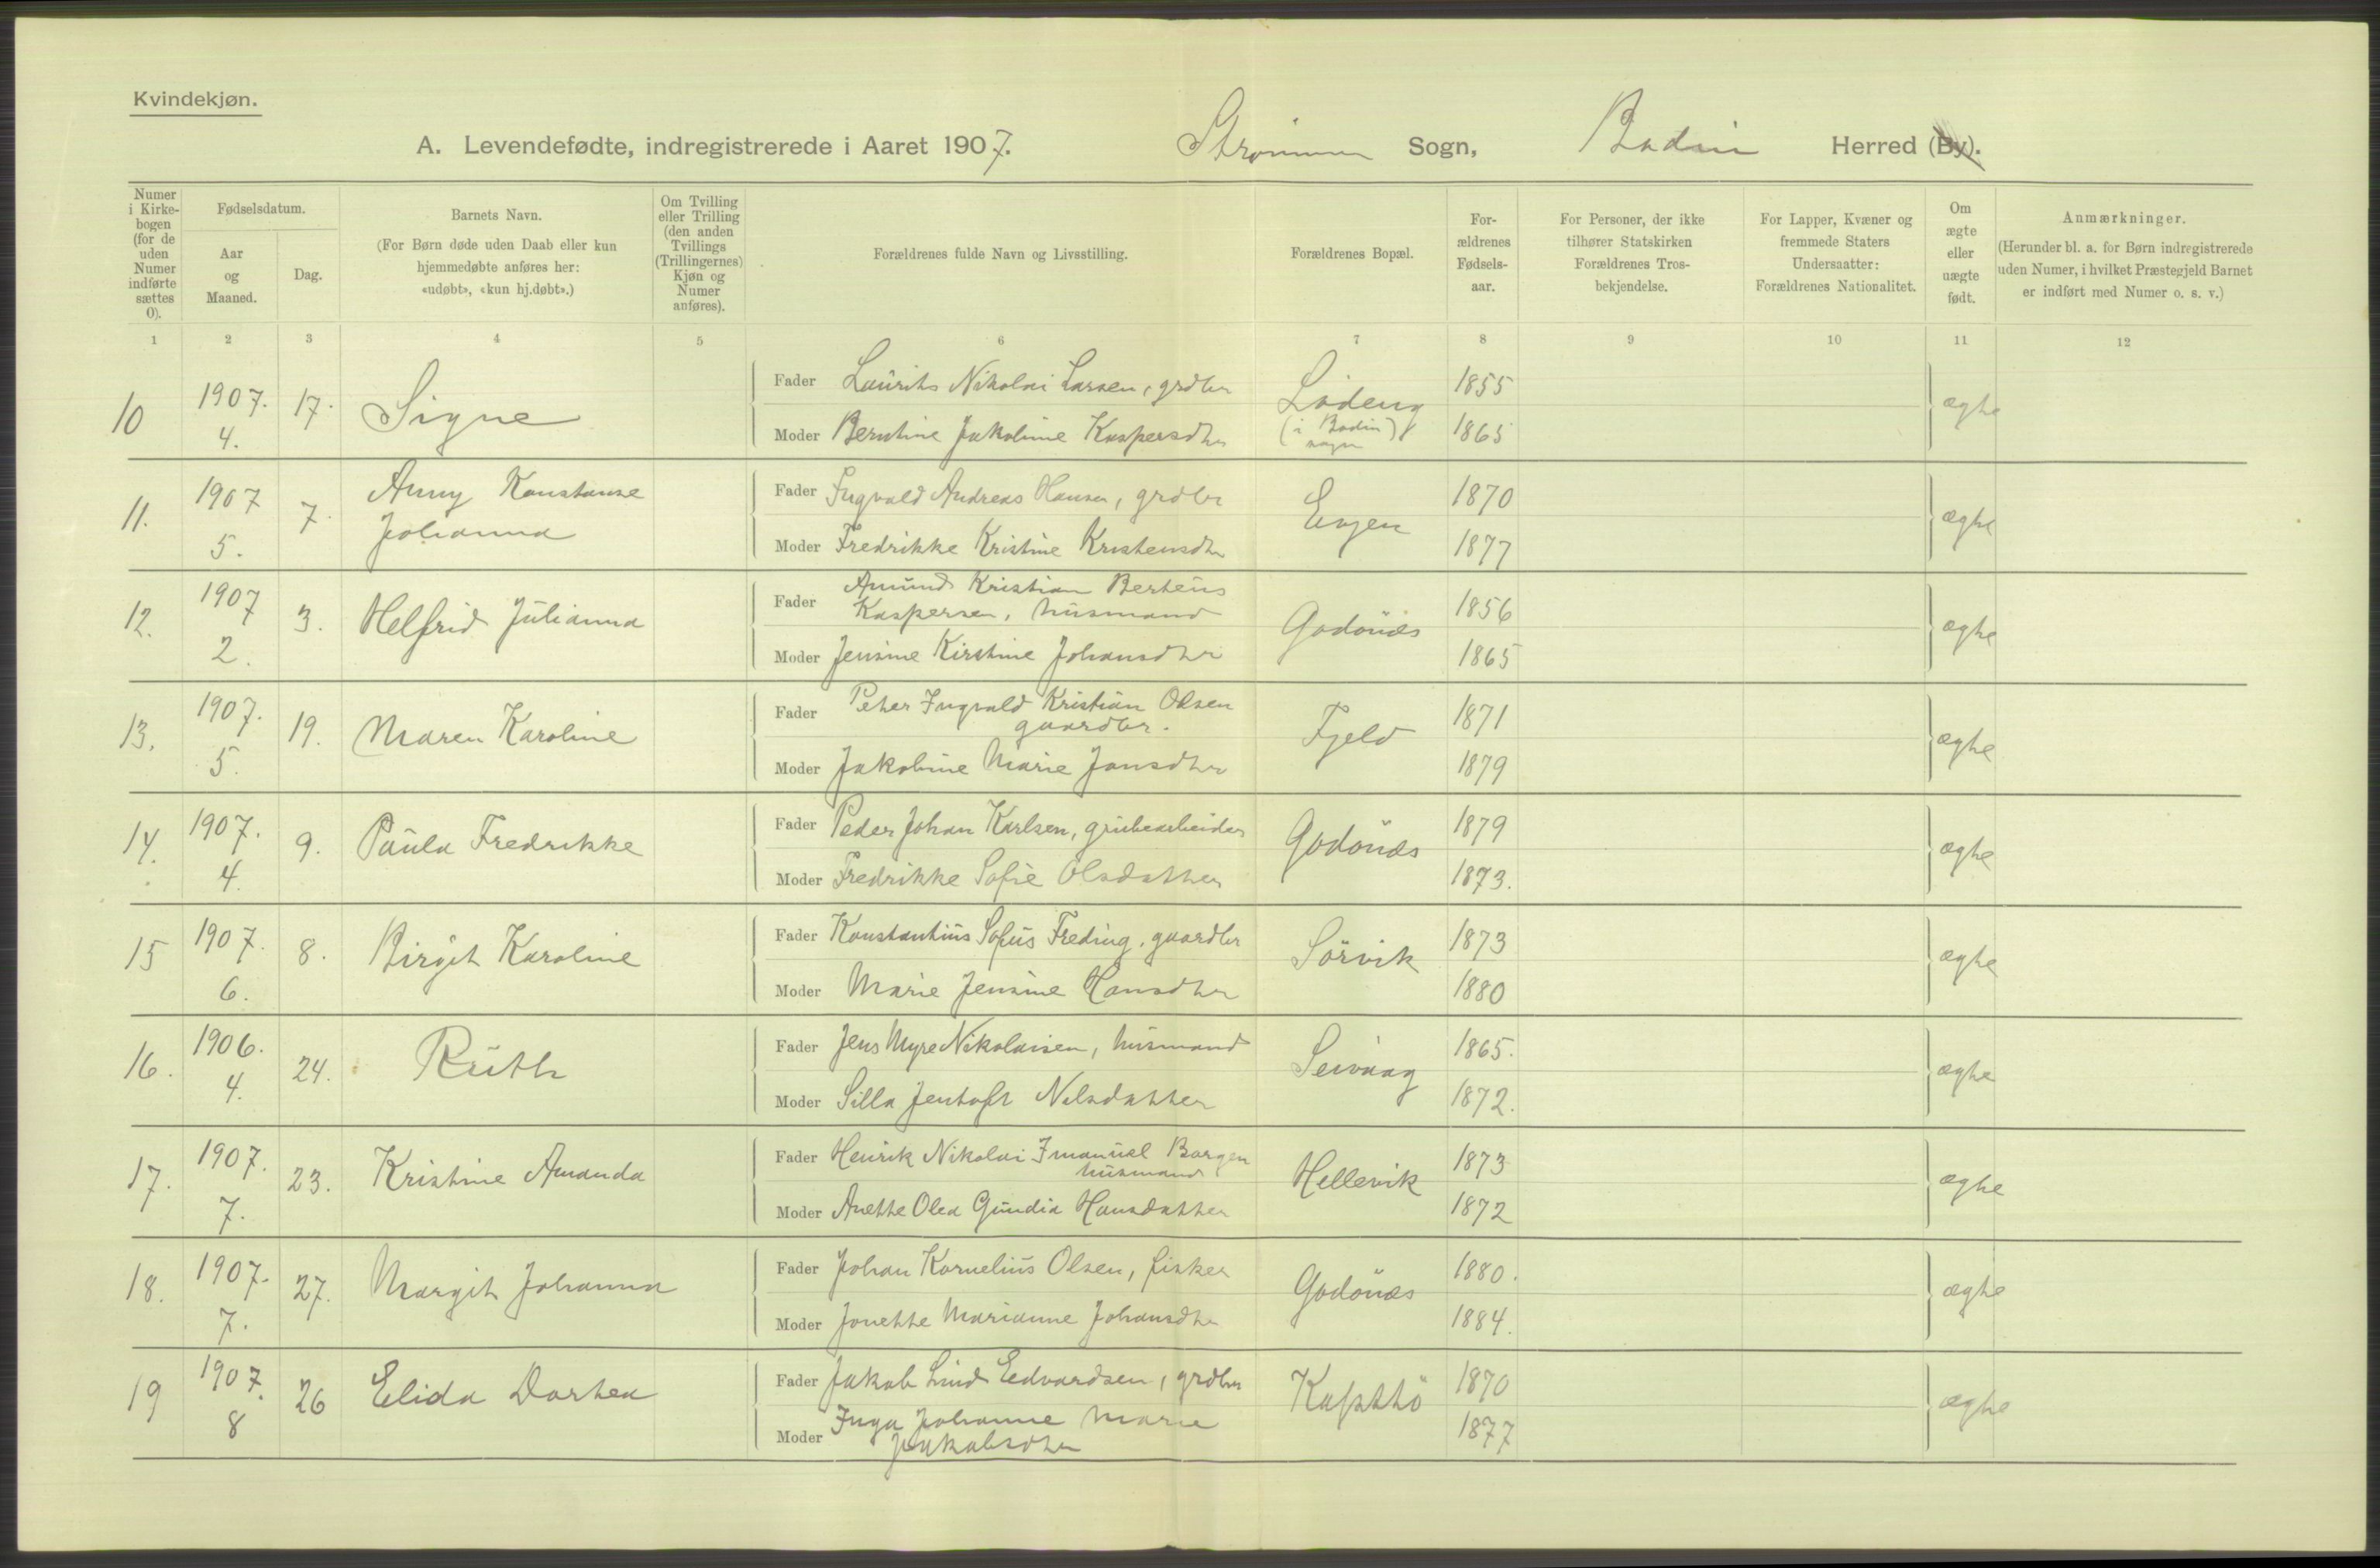 Kvindekjøn.
A. Levendefødte, indregistrerede i Aaret 1907. Strømmen Sogn, Bodin Herred (By).
Numer i Kirke-bogen (for de uden Numer indførte sættes 0).
Fødselsdatum.
Aar og Maaned.
Dag.
Barnets Navn.
(For Børn døde uden Daab eller kun hjemmedøbte anføres her: «udøbt», «kun hj.døbt».)
Om Tvilling eller Trilling (den anden Tvillings (Trillingernes) Kjøn og Numer anføres).
Forældrenes fulde Navn og Livsstilling.
Forældrenes Bopæl.
For-ældrenes Fødsels-aar.
For Personer, der ikke tilhører Statskirken Forældrenes Tros-bekjendelse.
For Lapper, Kvæner og fremmede Staters Undersaatter: Forældrenes Nationalitet.
Om ægte eller uægte født.
Anmærkninger.
(Herunder bl. a. for Børn indregistrerede uden Numer, i hvilket Præstegjeld Barnet er indført med Numer o. s. v.)
1 2 3 4 5 6 7 8 9 10 11 12
10 1907. 4. 17. Signe
Fader Laurits Nikolai Larsen, grdbr Löding (i Bodin sogn) 1855 ægte
Moder Berntine Jakobine Kaspersdtr 1865
11. 1907 5. 7. Anny Konstanse Johanna
Fader Ingvald Andreas Hansen, grdbr Evjen 1870 ægte
Moder Fredrikke Kristine Kristensdtr 1877
12. 1907 2. 3. Helfrid Julianna
Fader Amund Kristian Berteus Kaspersen, husmand Godönæs 1856 ægte
Moder Jensine Kirstine Johansdtr 1865
13. 1907. 5. 19. Maren Karoline
Fader Peter Ingvald Kristian Olsen gaardbr. Fjeld 1871 ægte
Moder Jakobine Marie Jonsdtr 1879
14. 1907. 4. 9. Paula Fredrikke
Fader Peder Johan Karlsen, grubearbeider Godönæs 1879 ægte
Moder Fredrikke Sofie Olsdatter 1873.
15 1907. 6. 8. Birgit Karoline
Fader Konstantius Sofus Freding, gaardbr Sörvik 1873 ægte
Moder Marie Jensine Hansdtr 1880
16. 1906. 4. 24. Ruth
Fader Jens Myre Nikolaisen, husmand Seivaag 1865. ægte
Moder Silla Jentoft Nilsdatter 1872.
17. 1907. 7. 23. Kristine Amanda
Fader Henrik Nikolai Imanuel Borgen husmand Hellevik 1873 ægte
Moder Anette Olea Gundia Hansdatter 1872
18. 1907. 7. 27. Margit Johanna
Fader Johan Kornelius Olsen, fisker Godönæs 1880. ægte
Moder Jonette Marianne Johansdtr 1884.
19 1907. 8 26 Elida Dorthea
Fader Jakob Lind Edvardsen, grdbr Kapstö 1870 ægte
Moder Inga Johanne Marie Jakobsdtr 1877